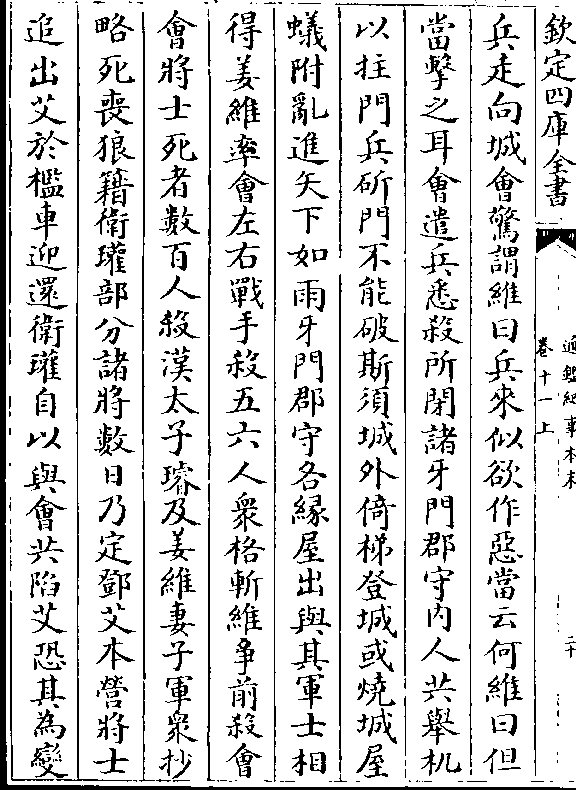 欽定四庫全書
通鑑紀事本末
卷十一上
二十
兵走向城會驚謂維曰兵來似欲作惡當云何維曰但
當擊之耳會遣兵悉殺所閉諸牙門郡守內人共舉机
以拄門兵斫門不能破斯須城外倚梯登城或燒城屋
蟻附亂進矢下如雨牙門郡守各緣屋出與其軍士相
得姜維率會左右戰手殺五六人衆格斬維爭前殺會
會將士死者數百人殺漢太子璿及姜維妻子軍衆抄
略死喪狼籍衛瓘部分諸將數日乃定鄧艾本營將士
追出艾於檻車迎還衛瓘自以與會共陷艾恐其為變